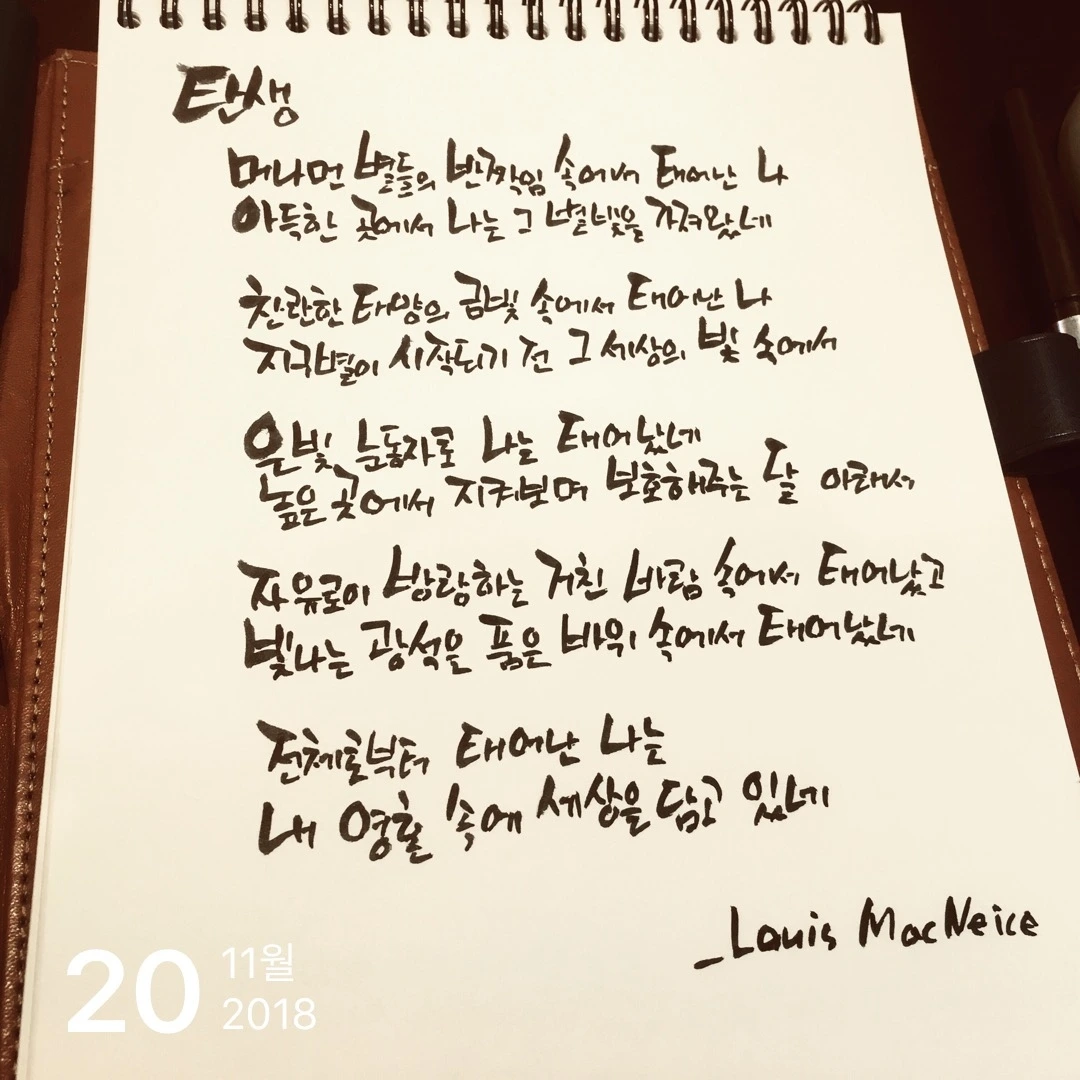 탄생
머나먼 별들의 반짝임 속에서 태어난 나
아득한 곳에서 나는 그 별빛을 가져왔네
찬란한 태양의 금빛 속에서 태어난 나
지구별이 시작되기 전 그 세상의 빛 속에서
은빛 눈동자로 나는 태어났네
높은 곳에서 지켜보며 보호해주는 달 아래서
자유로이 방랑하는 거친 바람 속에서 태어났고
빛나는 광석을 품은 바위 속에서 태어났네
전체로부터 태어난 나는
내 영혼 속에 세상을 담고 있네
_Louis MacNeice
20 11월
2018